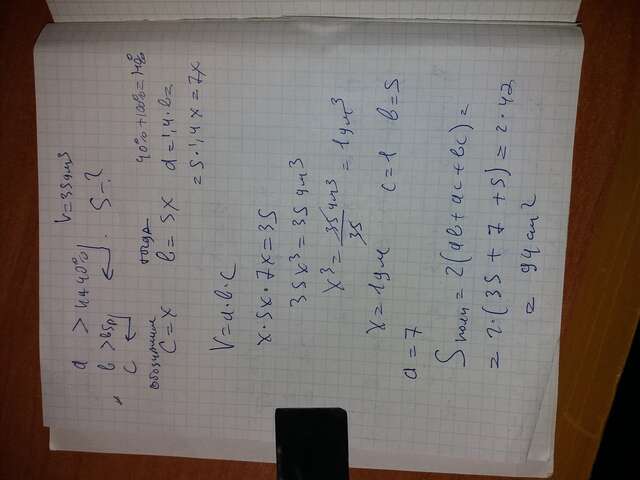 V=35дм³
a > на 40%
b > в 5р
c
S-?
обозначим
c = x
тогда
b = 5x
40%+100%=140%
a = 1,4·b =
= 5·1,4x = 7x
V = a·b·c
x·5x·7x = 35
35x³ = 35дм³
x³ = 35дм³/35 = 1дм³
x = 1дм c = 1 b = 5
a = 7
Sполн = 2(ab + ac + bc) =
= 2·(35 + 7 + 5) = 2·42
= 94дм²